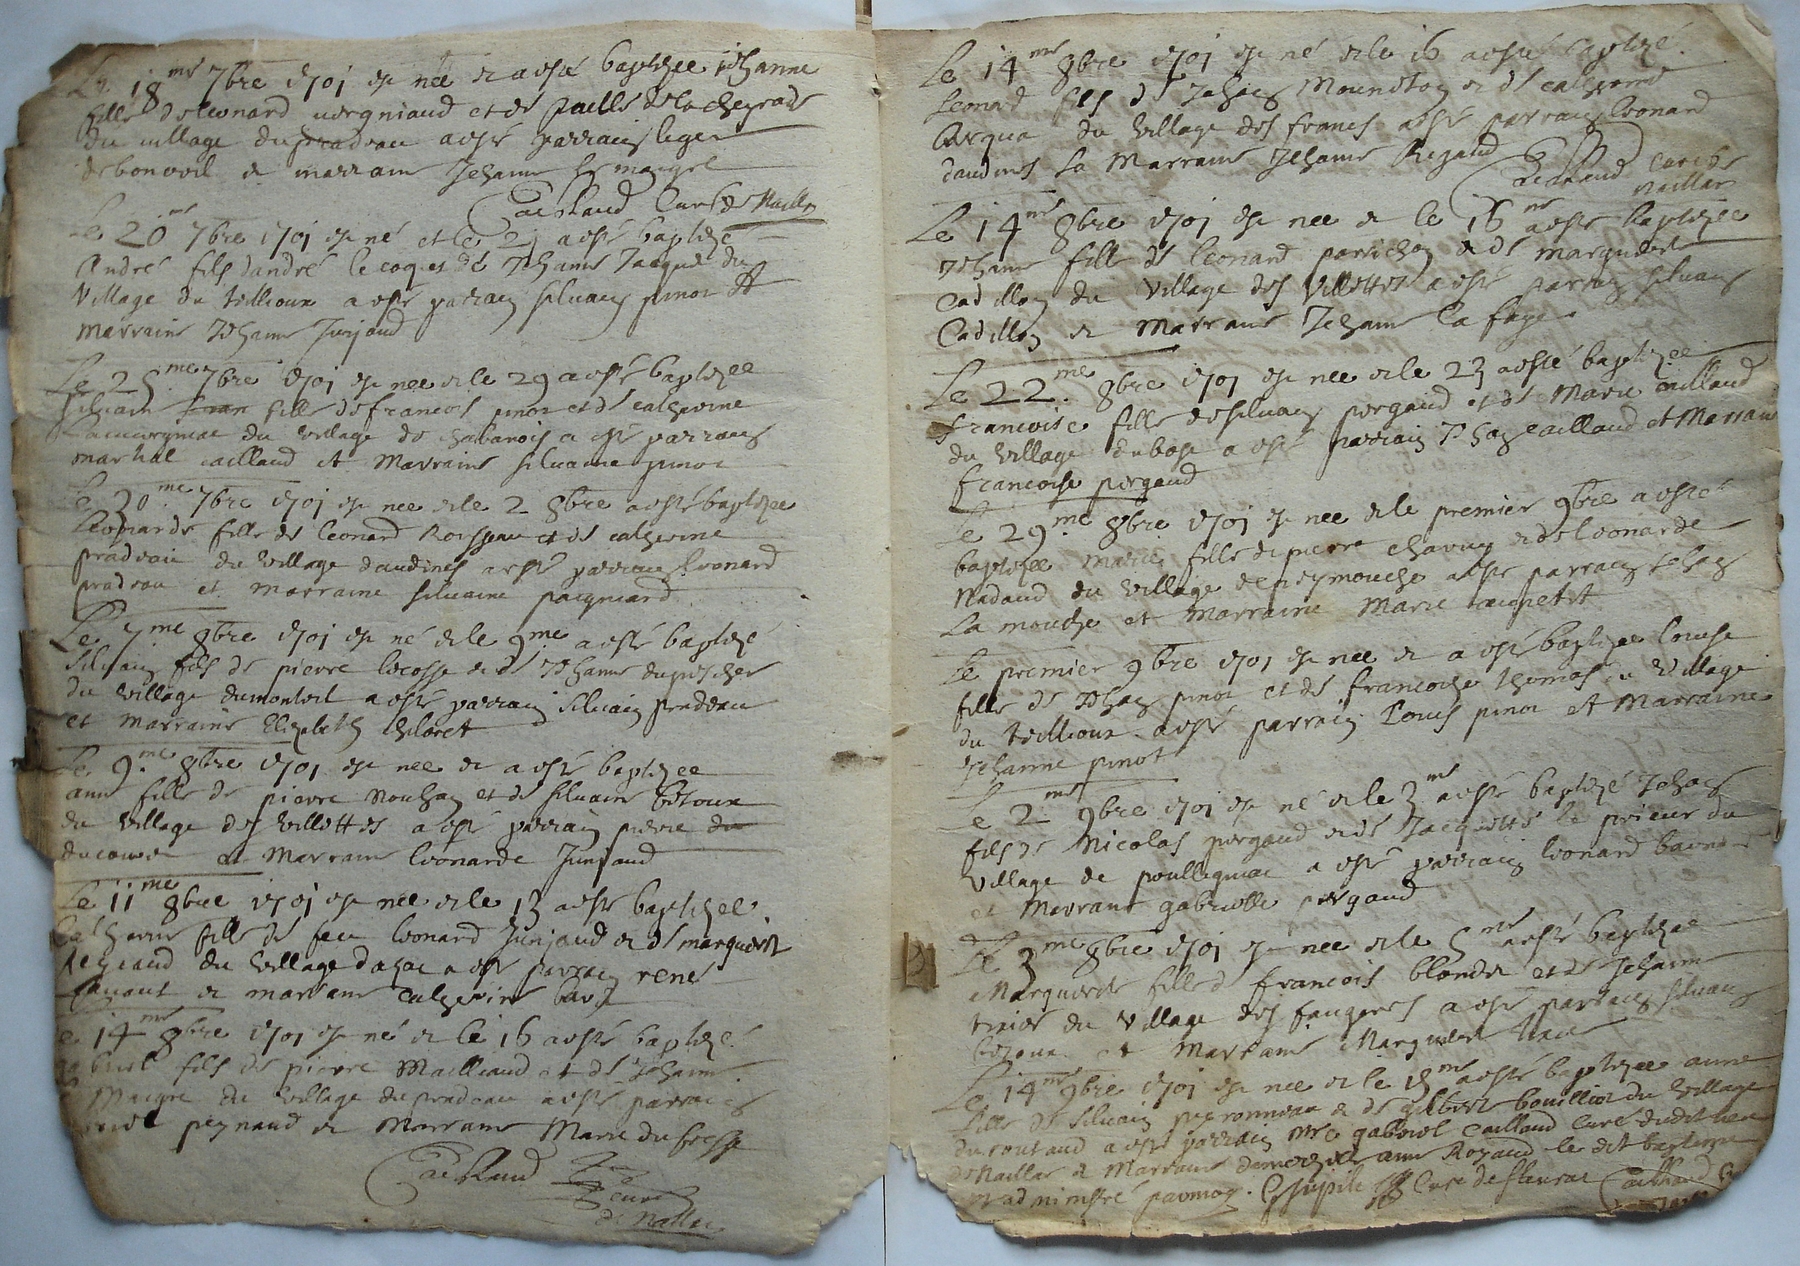 Le 18me 7bre 1701 est née et a esté baptizée jehanne
fille de leonard vergniaud et de paulle de la chezrade
du village du pradeau a esté parrain leger
de bonvoil et marraine Jehanne le maigre
Cailhaud Curé de Naillac
Le 20me 7bre 1701 est né et le 21 a esté baptizé
André fils d'andré lecoq et de Jehanne Jacquet du
village du teillioux a esté parrain silvain pinot et
Marraine Jehanne Junjaud
Le 28me 7bre 1701 est née et le 29 a esté baptizée
silvain fille de francois pinot et de catherine
du village de chabanois a esté parrain
martial caillaud et Marraine silvaine pinot
Le 30me 7bre 1701 est née et le 2 8bre a esté baptizée
Leonarde fille de leonard Rousseau et de catherine
pradeau du village daudines a esté parrain Leonard
pradeau et marraine silvaine paigniard
Le 7me 8bre 1701 est né et le 9me a esté baptizé
Silvain fils de pierre lecosse et de Jehanne dupischer
du village dumonteil a esté parrain silvain pradeau
et marraine Elizabeth chloret
Le 9me 8bre 1701 est née et a esté baptizée
anne fille de pierre Nouhan et de silvaine betoux
du village des villettes a esté parrain pierre du
ducouret et Marraine leonarde Junjaud
Le 11me 8bre 1701 est née et le 13 a esté baptizée
Catherine fille de feu leonard Junjaud et de marguerite
Regeaud du village dazac a esté parrain rené
et marraine catherine
Le 14me 8bre 1701 est né et le 16 a esté baptizé
fils de pierre Mailliaud et de Jehanne
Maigre du village du pradeau a esté parrain
peynaud et Marraine Marie du fresse
Cailhaud
Curé
de Naillac
Le 14me 8bre 1701 est né et le 16 a esté baptizé
Leonard fils de Jehan Mounston et de catherine
Lerqua du village des francs a esté parrain leonard
daudines la Marraine Jehanne Rigaud
Cailhaud Curé de
Naillac
Le 14me 8bre 1701 est née et le 16me a esté baptizée
Jehanne fille de leonard parrichon et de marguerite
Cadillon du village des Villettes a esté parrain silvain
Cadillon et Marraine Jehanne La faye
Le 22me 8bre 1701 est née et le 23 a esté baptizée
francoise fille de silvain pergaud et de Marie caillaud
du village dubost a esté parrain Jehan caillaud et Marraine
francoise pergaud
Le 29me 8bre 1701 est née et le premier 9bre a esté
baptizée marie fille de pierre chavan et de leonarde
Nadaud du village de peymouche a esté parrain Jehan
La mouche et marraine Marie coupetit
Le premier 9bre 1701 est née et a esté baptizée louise
fille de Jehan pinot et de francoise thomas du village
du teillioux a esté parrain Louis pinot et Marraine
Jehanne pinot
Le 2me 9bre 1701 est né et le 3me a esté baptizé Jehan
fils de Nicolas pergaud et de Jacquette le prieur du
village de poulligniac a esté parrain leonard
et Marraine gabrielle pergaud
Le 3me 9bre 1701 est née et le 5me a esté baptizée
Marguerite fille de francois blondet et de Jehanne
tixier du village des faugeres a esté parrain silvain
betoux et Marraine Marguerite
Le 14me 9bre 1701 est née et le 15me a esté baptizée anne
fille de silvain peyronneau et de gilberte bouillior du village
du coutaud a esté parrain Mre gabriel Caillaud Curé dudit lieu
de Naillac et Marraine damoizelle anne Rogaud le dit baptesme
administré par moy Curé de fleurac Cailhaud